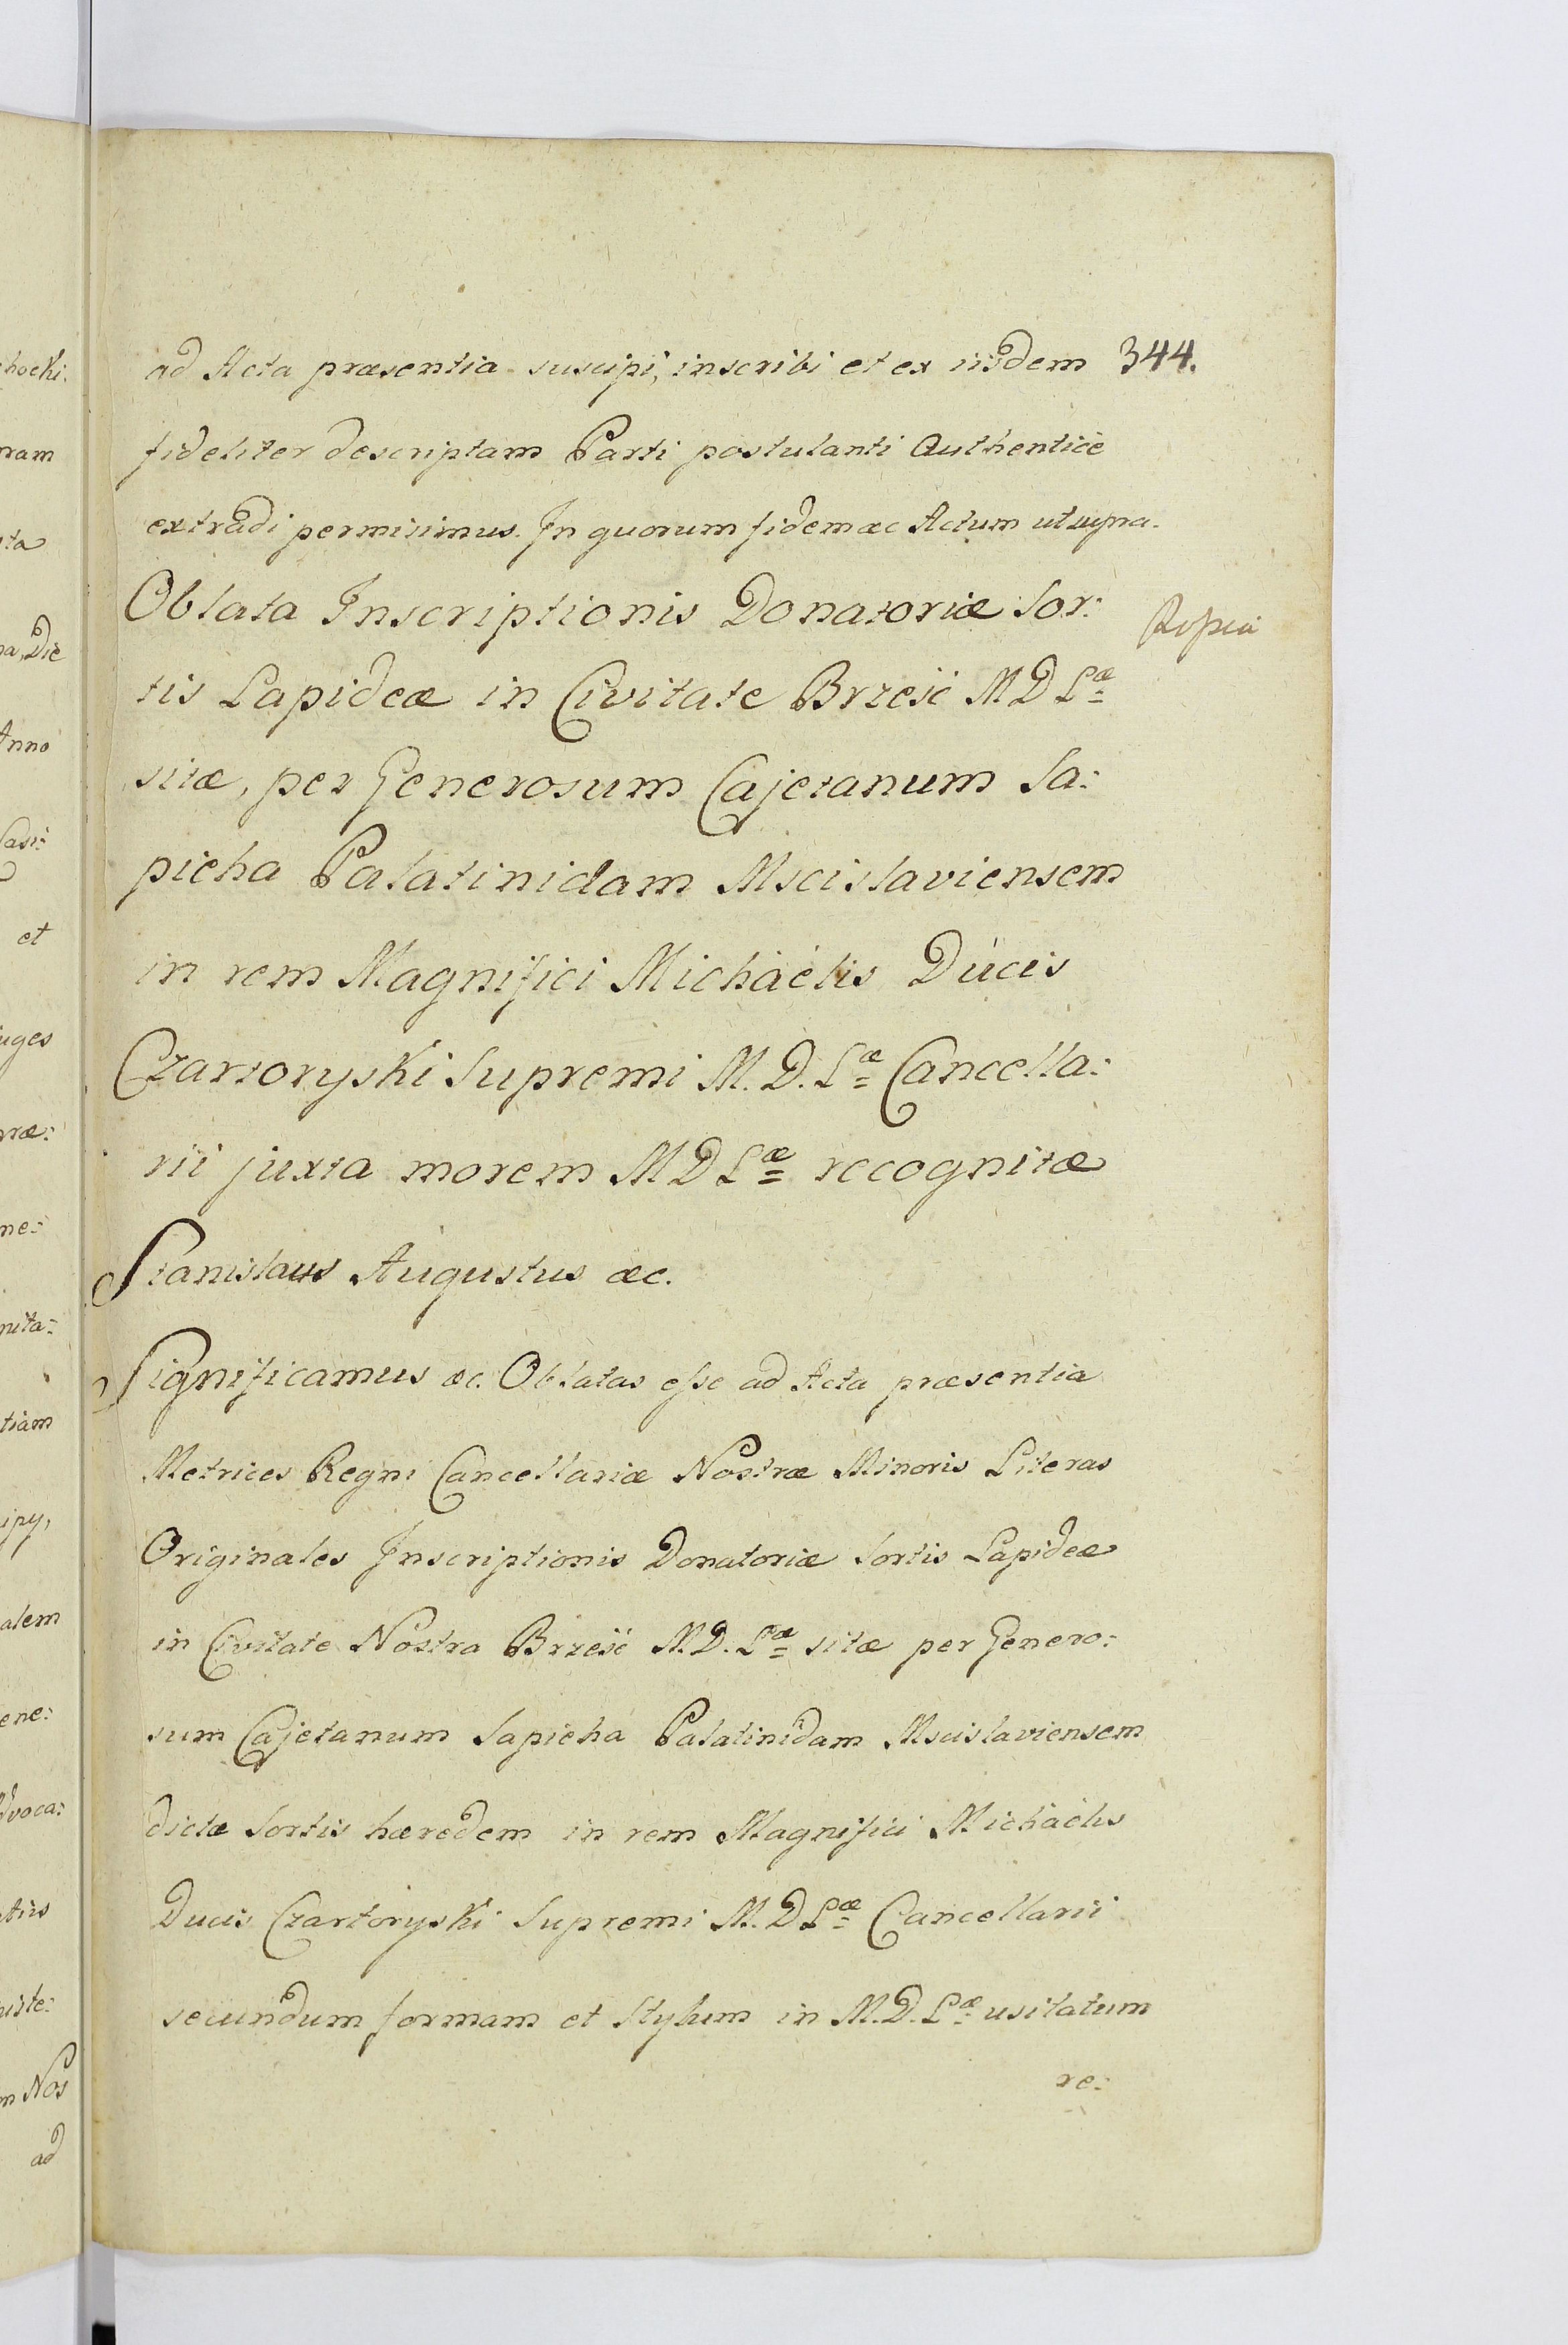 ad Acta præsentia suscipi, inscribi et ex iisdem 344.
fideliter descriptam Parti postulanti Authenticè
extradi permisimus. In quorum fidem æc Actum ut supra.
Oblata Inscriptionis Donatoriæ Sor:
tis Lapideæ in Civitate Brześć M D Læ
sitæ, per Generosum Cajetanum Sa:
pieha Palatinidam Mscislaviensem
in rem Magnifici Michaëlis Ducis
Czartoryski Supremi M. D. Læ Cancella:
rii juxta morem M D Læ recognitæ
Stanislaus Augustus æc.
Significamus æc. Oblatas esse ad Acta præsentia
Metrices Regni Cancellariæ Nostræ Minoris Literas
Originales Inscriptionis Donatoriæ Sortis Lapideæ
in Civitate Nostra Brześć M. D. Læ sitæ per Genero:
sum Cajetanum Sapieha Palatinidam Mscislaviensem
dictæ Sortis hæredem in rem Magnifici Michaëlis
Ducis Czartoryski Supremi M. D Læ Cancellarii
secundum formam et Stylum in M. D. Læ usitatum
re: